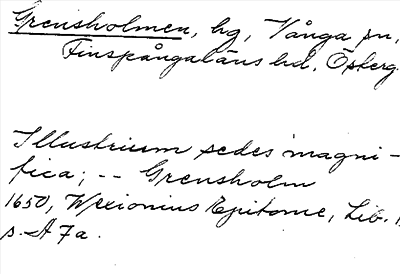 Grensholmen, hg, Vånga sn,
Finspångaläns hd, Österg.
Illustrium sedes magni-
fica; -- Grensholm
1650, Wexionius Epitome, Lib.
s. A 7a.